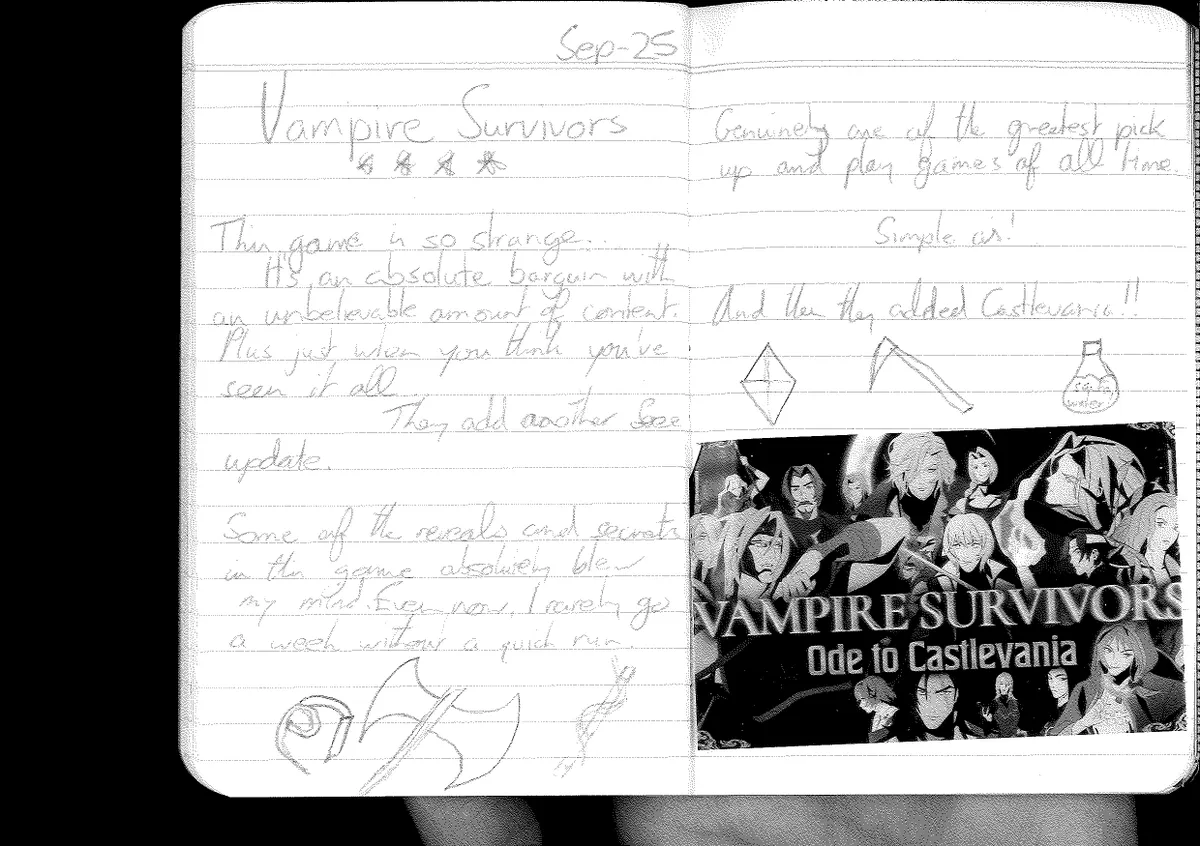 Sep-25
Vampire Survivors
This game is so strange...
It's an absolute bargain with
an unbelievable amount of content.
Plus just when you think you've
seen it all.
They add another free
update.
Some of the reveals and secrets
in this game absolutely blew
my mind. Even now, I rarely go
a week without a quick run.
Genuinely one of the greatest pick
up and play games of all time.
Simple as!
And then they added Castlevania!!
water
VAMPIRE SURVIVORS
Ode to Castlevania